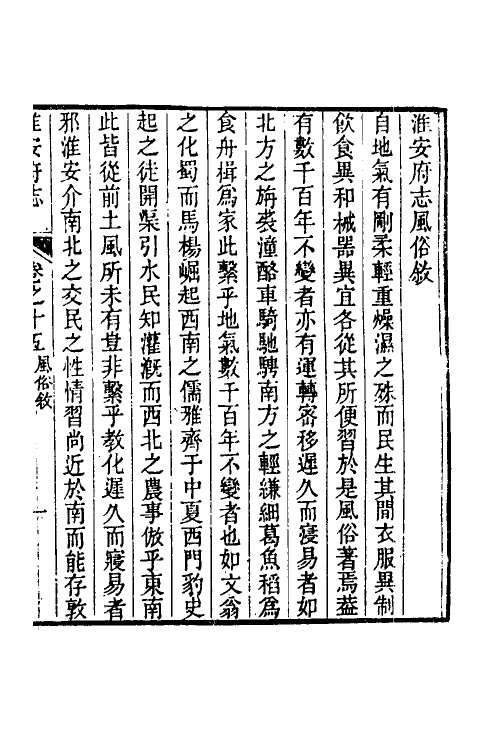 淮安府志風俗敘
自地氣有剛柔輕重燥濕之殊而民生其間衣服異制
飲食異和械器異宜各從其所便習於是風俗著焉葢
有數千百年不變者亦有運轉密移遲久而寖易者如
北方之旃裘潼酪車騎馳騁南方之輕縑細葛魚稻爲
食舟楫爲家此繫乎地氣數千百年不變者也如文翁
之化蜀而馬楊崛起西南之儒雅齊于中夏西門豹史
起之徒開渠引水民知灌漑而西北之農事倣乎東南
此皆從前土風所未有豈非繫乎教化遲久而寖易者
邪淮安介南北之交民之性情習尚近於南而能存敦
淮安府志
卷之十五 風俗敘 一